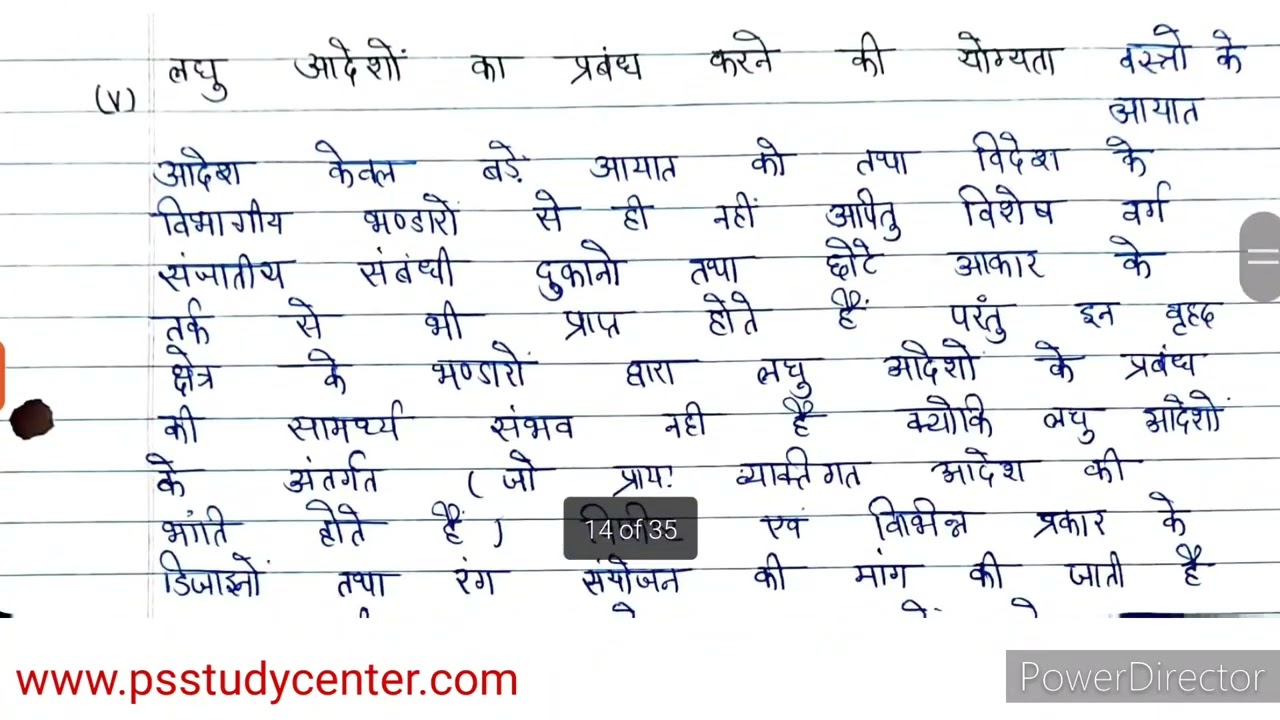 लघु आदेशों का प्रबंध करने की योग्यता वस्त्रो के
(v)
आयात
आदेश केवल बड़े आयात को तथा विदेश के
विभागीय भण्डारों से ही नहीं अपितु विशेष वर्ग
संजातीय संबंधी दुकानो तथा छोटे आकार के
तर्क से भी प्राप्त होते हैं परंतु इन वृहद
क्षेत्र के भण्डारों द्वारा लघु आदेशों के प्रबंध
की सामर्थ्य संभव नही है क्योकि लघु आदेशों
के अंतर्गत ( जो प्रायः व्यक्तिगत आदेश की
भांति होते हैं ) एवं विभिन्न प्रकार के
14 of 35
डिजाइनों तथा रंग संयोजन की मांग की जाती है
www.psstudycenter.com
PowerDirector